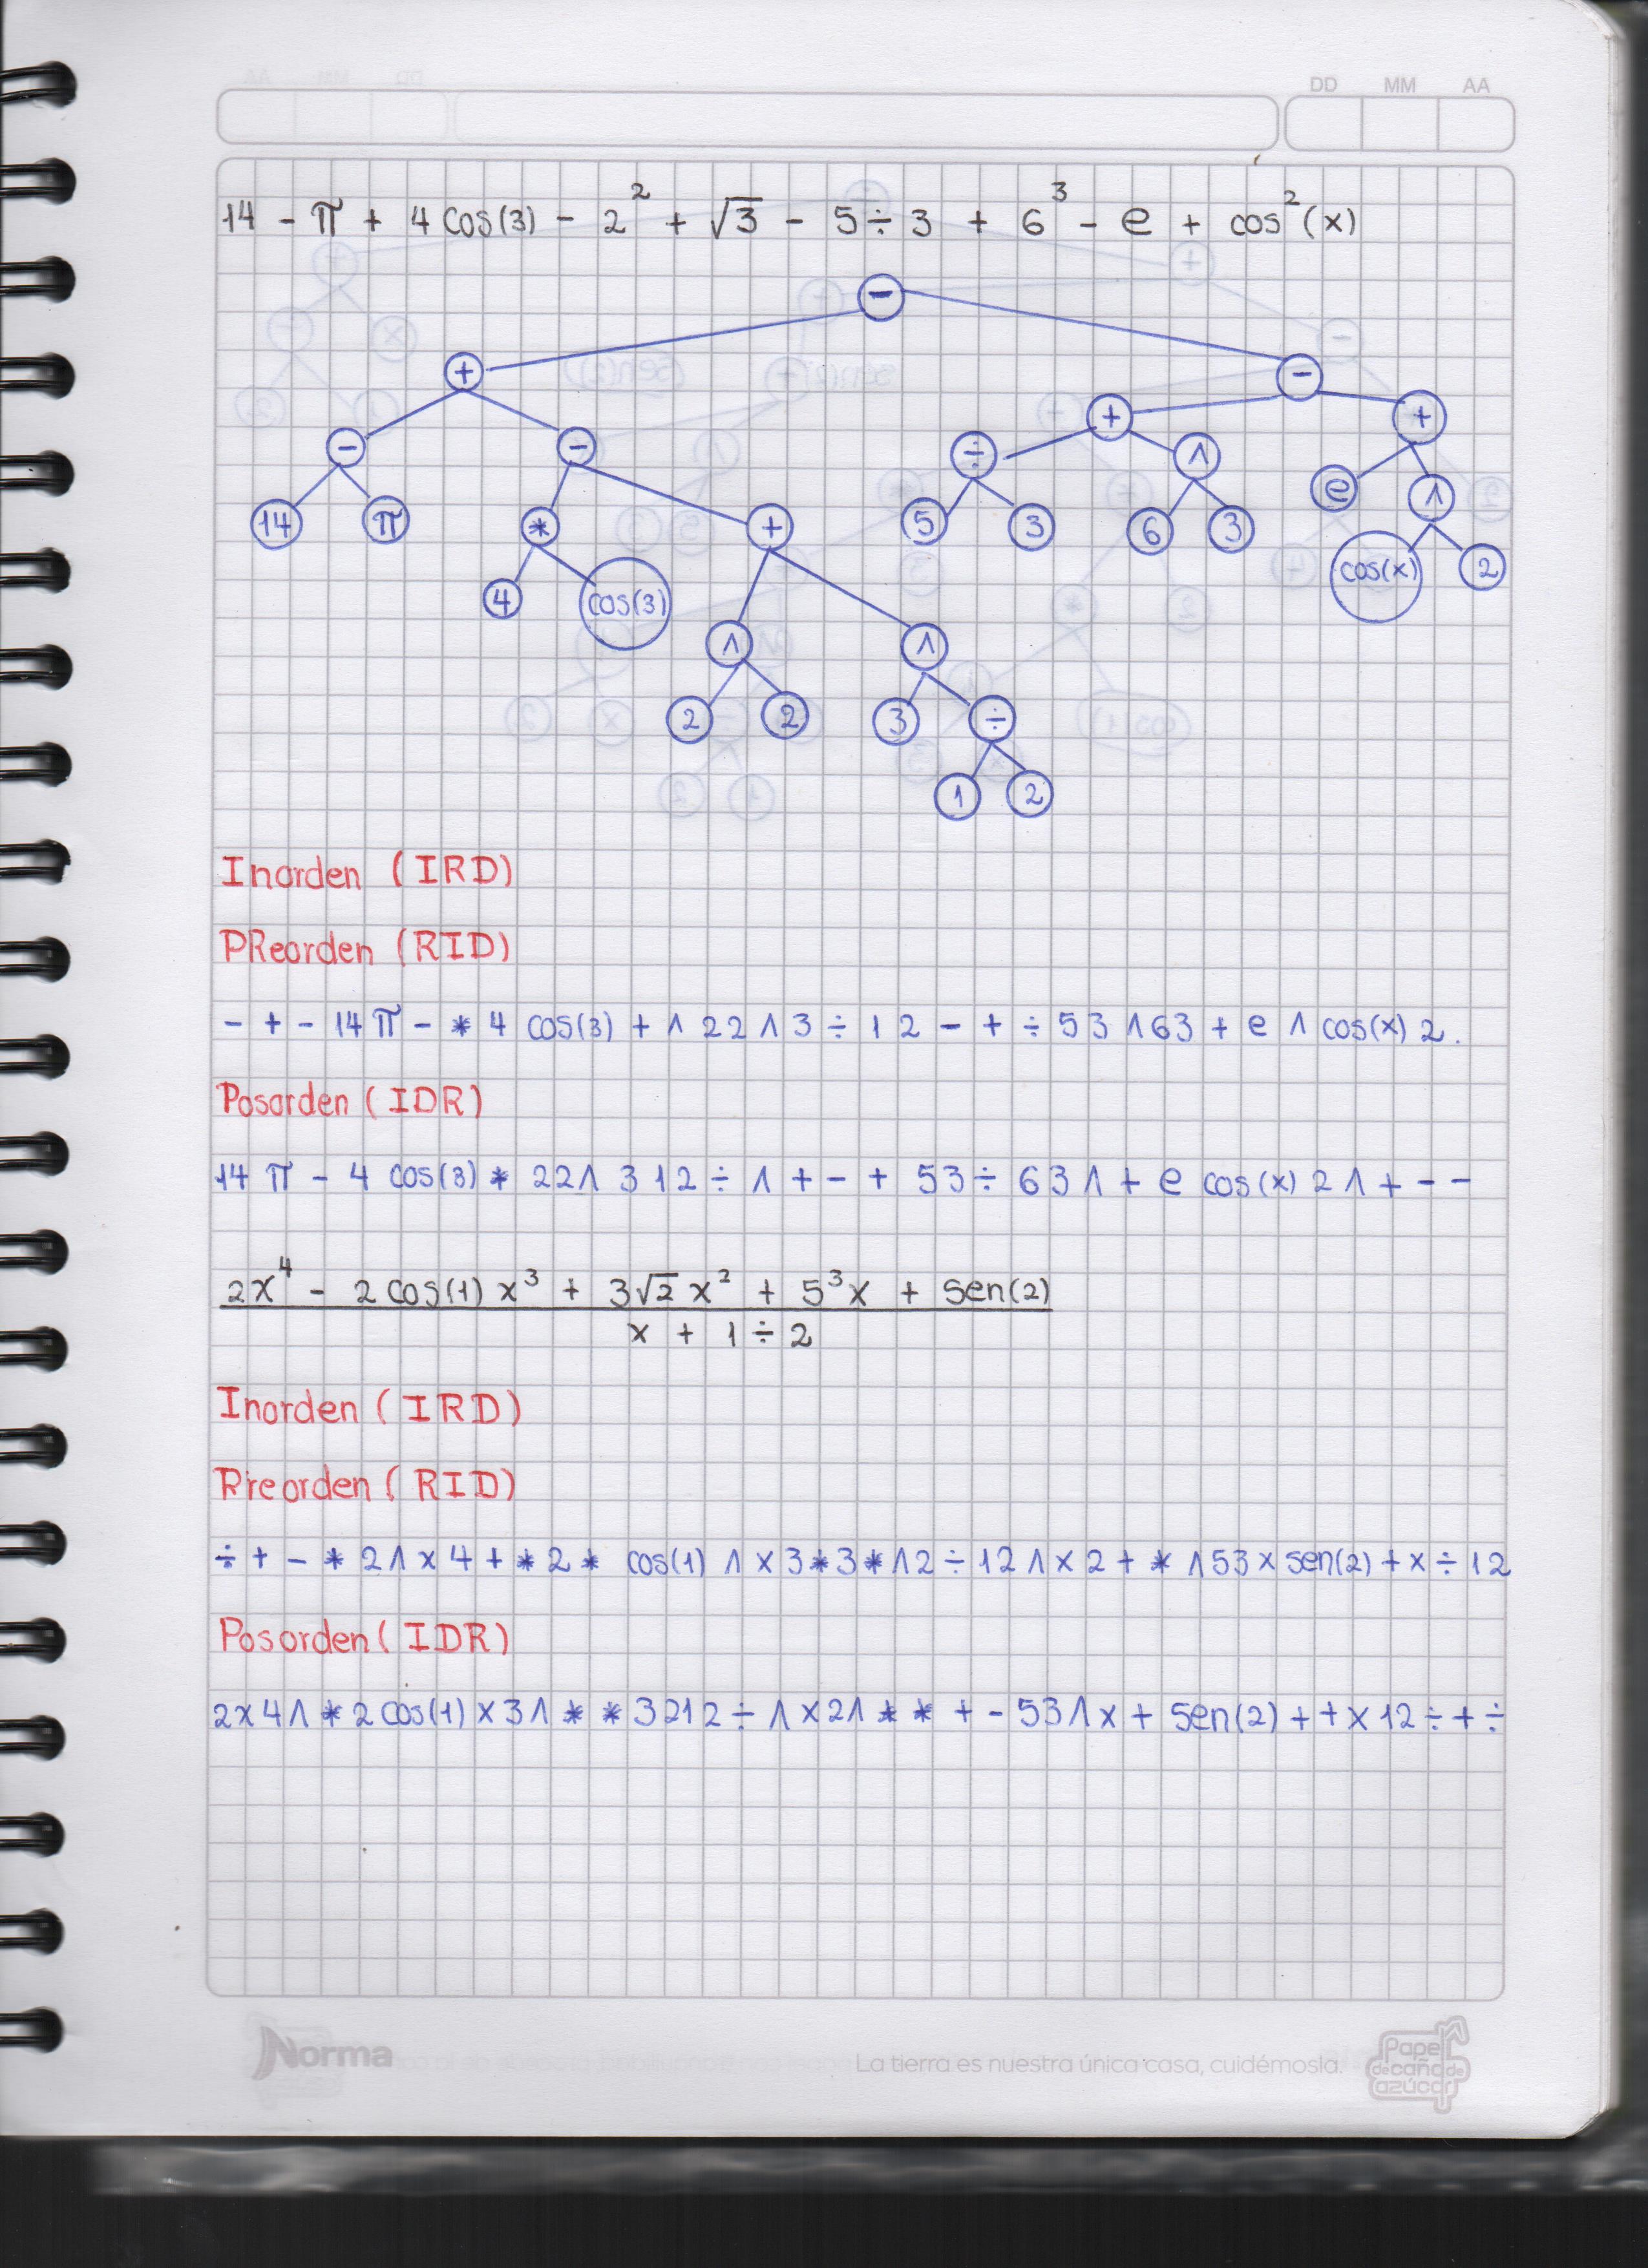 DD MM AA
14 - π + 4 cos(3) - 2² + √3 - 5 ÷ 3 + 6³ - e + cos²(x)
-
+ -
+ +
- - ÷ ∧
e ∧
14 π * + 5 3 6 3
cos(x) 2
4 cos(3)
∧ ∧
2 2 3 ÷
1 2
Inorden (IRD)
PReorden (RID)
- + - 14 π - * 4 cos(3) + ∧ 2 2 ∧ 3 ÷ 1 2 - + ÷ 5 3 ∧ 6 3 + e ∧ cos(x) 2.
Posorden (IDR)
14 π - 4 cos(3) * 2 2 ∧ 3 1 2 ÷ ∧ + - + 5 3 ÷ 6 3 ∧ + e cos(x) 2 ∧ + - -
2x⁴ - 2 cos(1) x³ + 3√2 x² + 5³x + sen(2)
x + 1 ÷ 2
Inorden (IRD)
Preorden (RID)
÷ + - * 2 ∧ x 4 + * 2 * cos(1) ∧ x 3 * 3 * ∧ 2 ÷ 1 2 ∧ x 2 + * ∧ 5 3 x sen(2) + x ÷ 1 2
Posorden (IDR)
2 x 4 ∧ * 2 cos(1) x 3 ∧ * * 3 2 1 2 ÷ ∧ x 2 ∧ * * + - 5 3 ∧ x + sen(2) + + x 1 2 ÷ + ÷
Norma
La tierra es nuestra única casa, cuidémosla.
Papel
de caña de
azúcar